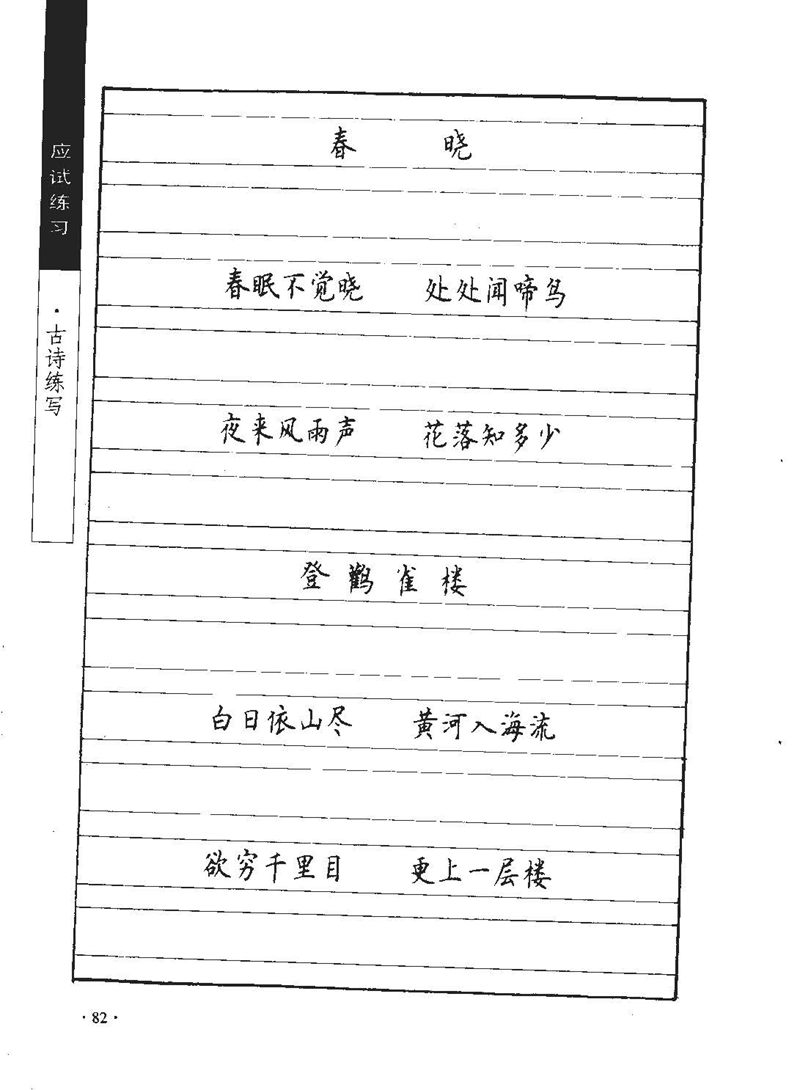 应试练习
·古诗练写
春 晓
春眠不觉晓 处处闻啼鸟
夜来风雨声 花落知多少
登鹳雀楼
白日依山尽 黄河入海流
欲穷千里目 更上一层楼
·82·